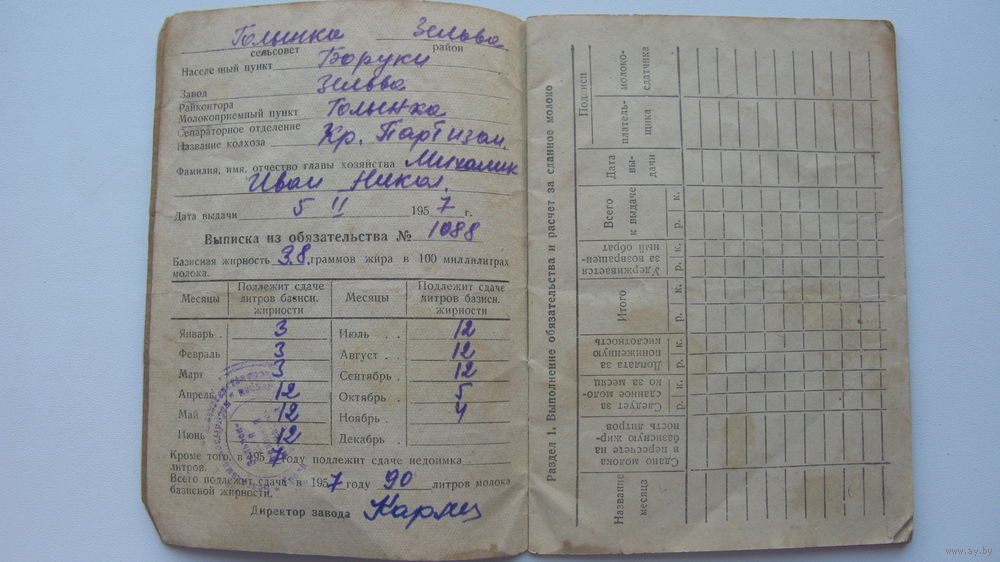 Голынка Зельва
сельсовет район
Населенный пункт Боруки
Завод Зельва
Райконтора
Молокоприемный пункт Голынка
Сепараторное отделение
Название колхоза Кр. Партизан
Фамилия, имя, отчество главы хозяйства Михалик
Иван Никол.
Дата выдачи 5 II 1957 г.
Выписка из обязательства № 1088
Базисная жирность 3,8 граммов жира в 100 миллилитрах
молока.
Месяцы Подлежит сдаче литров базисн. жирности Месяцы Подлежит сдаче литров базисн. жирности
Январь . 3 Июль . . 12
Февраль 3 Август . 12
Март 3 Сентябрь . 12
Апрель 12 Октябрь . 5
Май 12 Ноябрь . 4
Июнь 12 Декабрь .
Кроме того, в 1957 году подлежит сдаче недоимка
литров.
Всего подлежит сдаче в 1957 году 90 литров молока
базисной жирности.
Директор завода
Раздел 1. Выполнение обязательства и расчет за сданное молоко
Название месяца
Сдано молока в пересчете на базисную жирность литров
Следует за сданное молоко за месяц
р. к.
Доплата за пониженную кислотность
р. к.
Итого
р. к.
Удерживается за возвращенный обрат
р. к.
Всего к выдаче
р. к.
Дата выдачи
Подписи
плательщика
молокосдатчика
www.ay.by